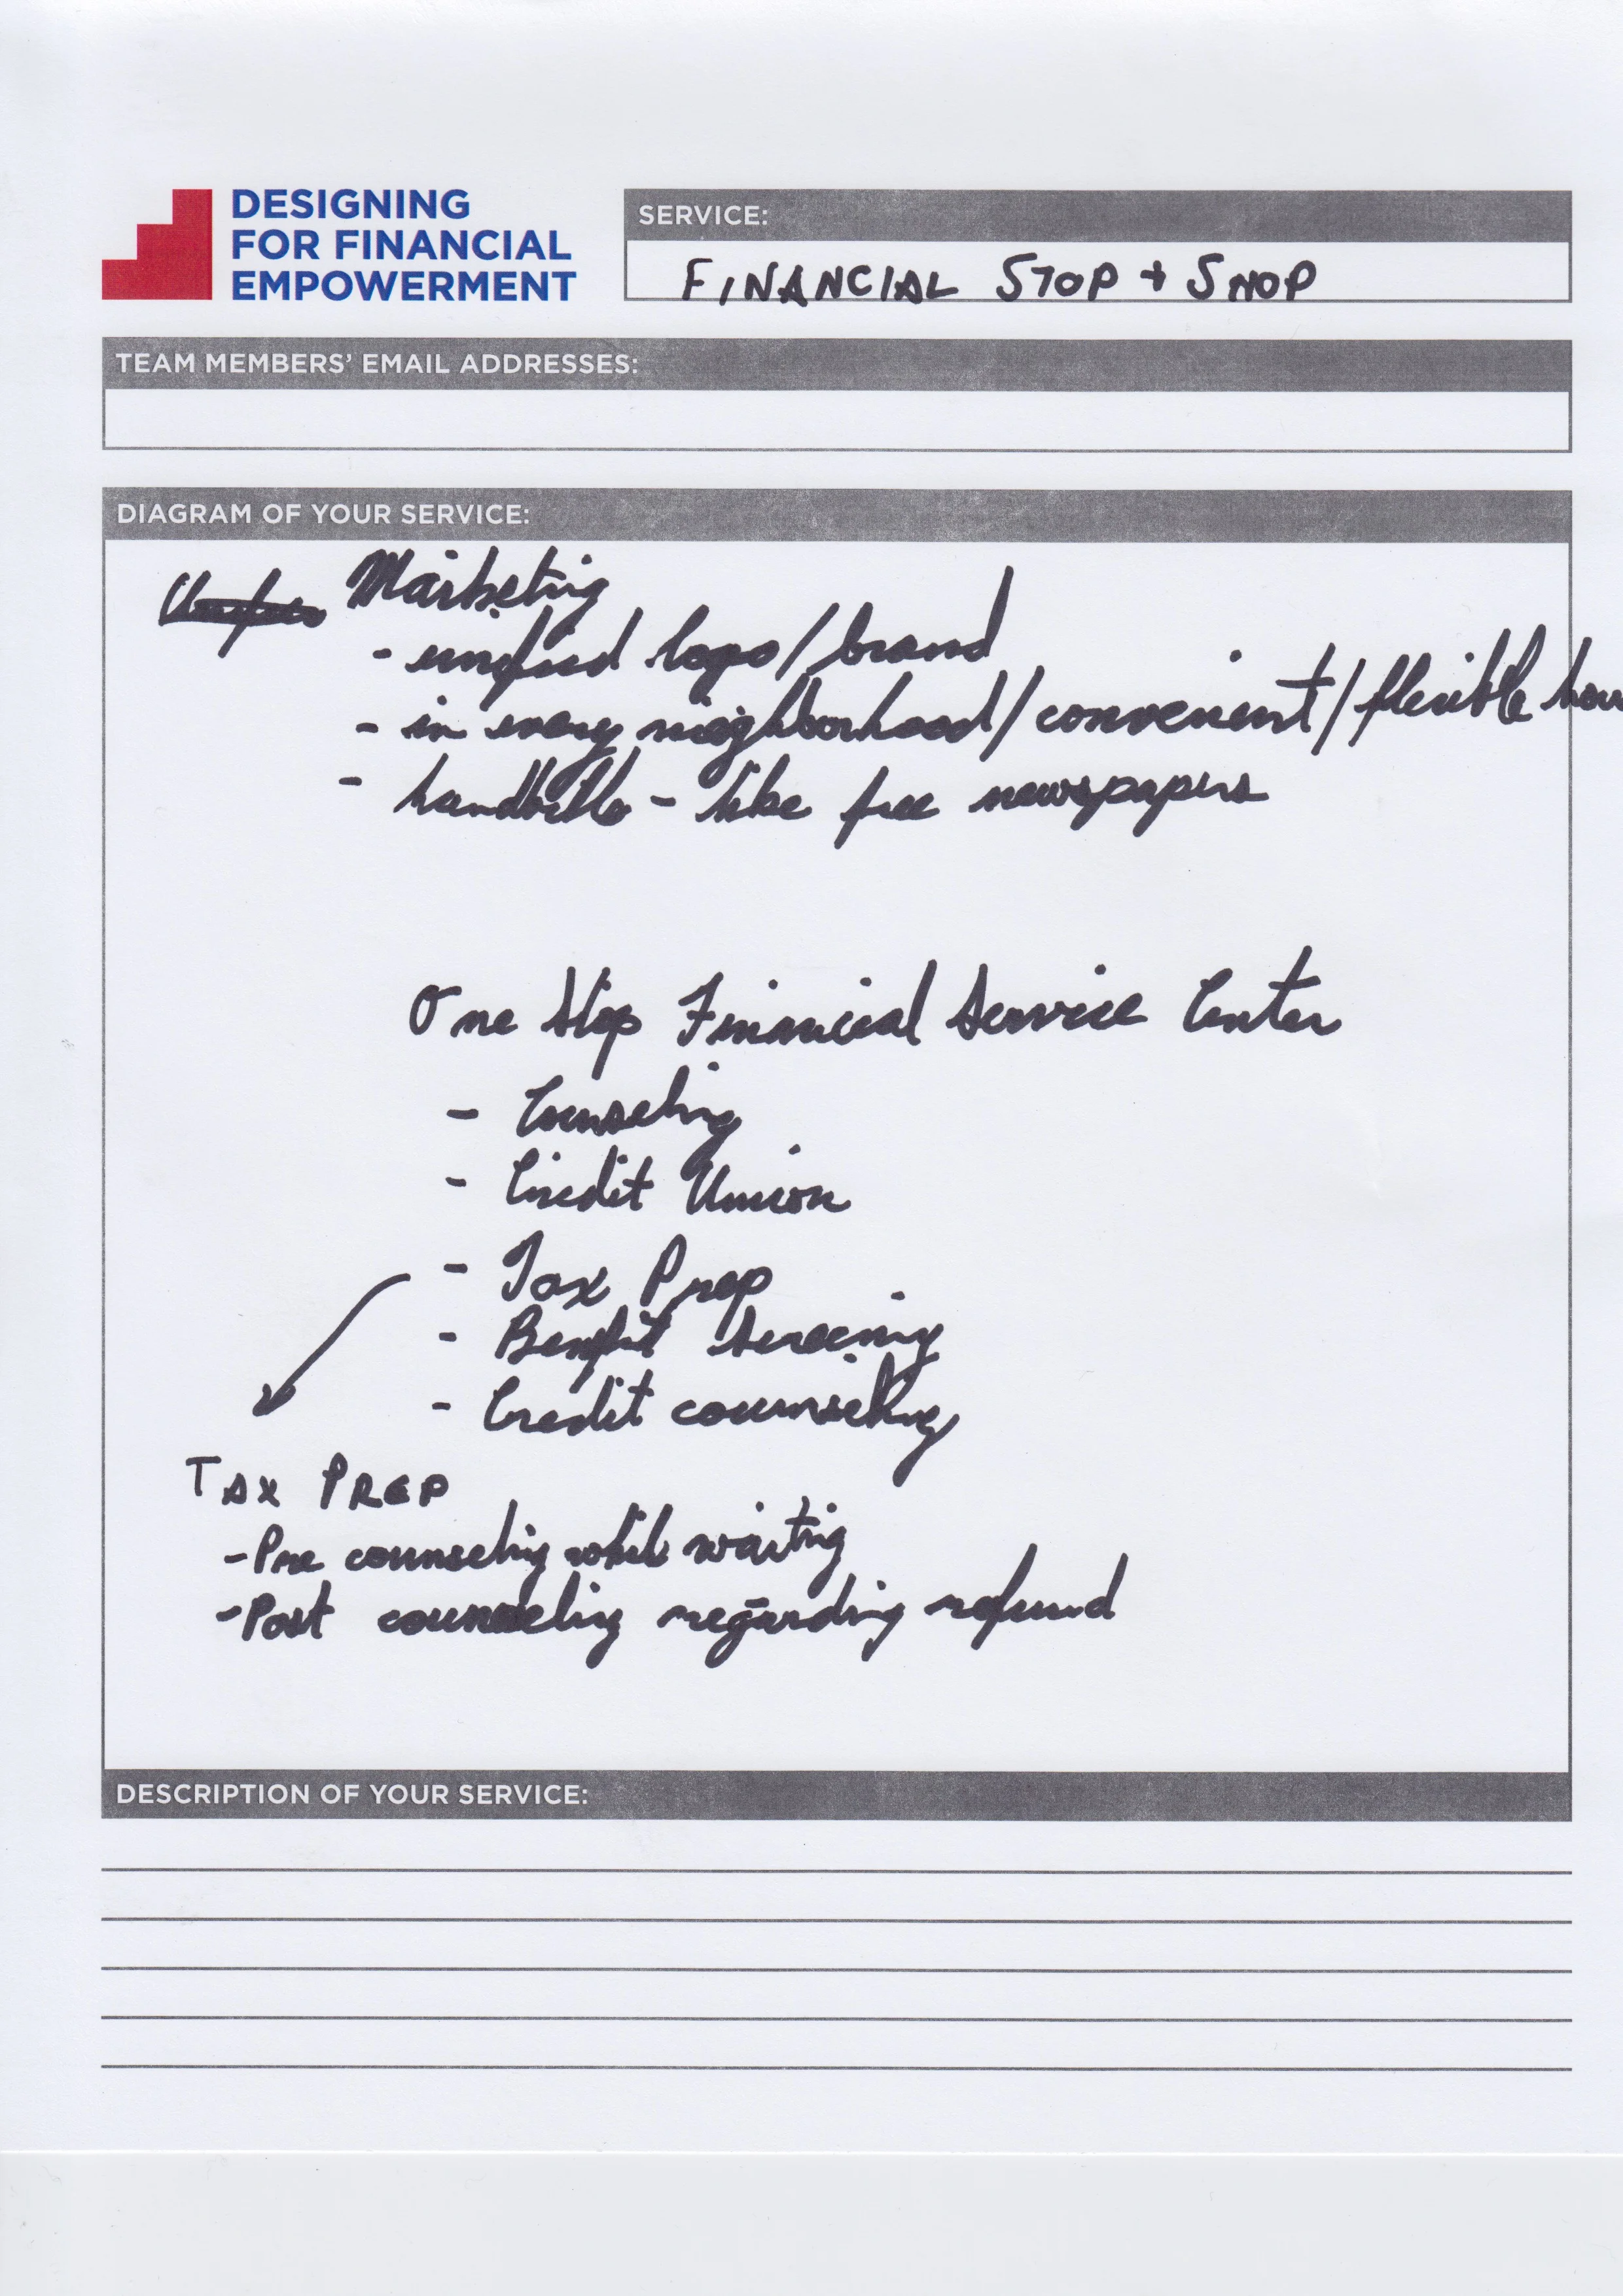 DESIGNING
FOR FINANCIAL
EMPOWERMENT
SERVICE:
FINANCIAL STOP + SHOP
TEAM MEMBERS' EMAIL ADDRESSES:
DIAGRAM OF YOUR SERVICE:
Marketing
- unified logo/brand
- in every neighborhood/convenient/flexible hou
- handbills - like free newspapers
One Stop Financial Service Center
- Counseling
- Credit Union
- Tax Prep
- Benefit Screening
- Credit counseling
TAX PREP
- Pre counseling while waiting
- Post counseling regarding refund
DESCRIPTION OF YOUR SERVICE: